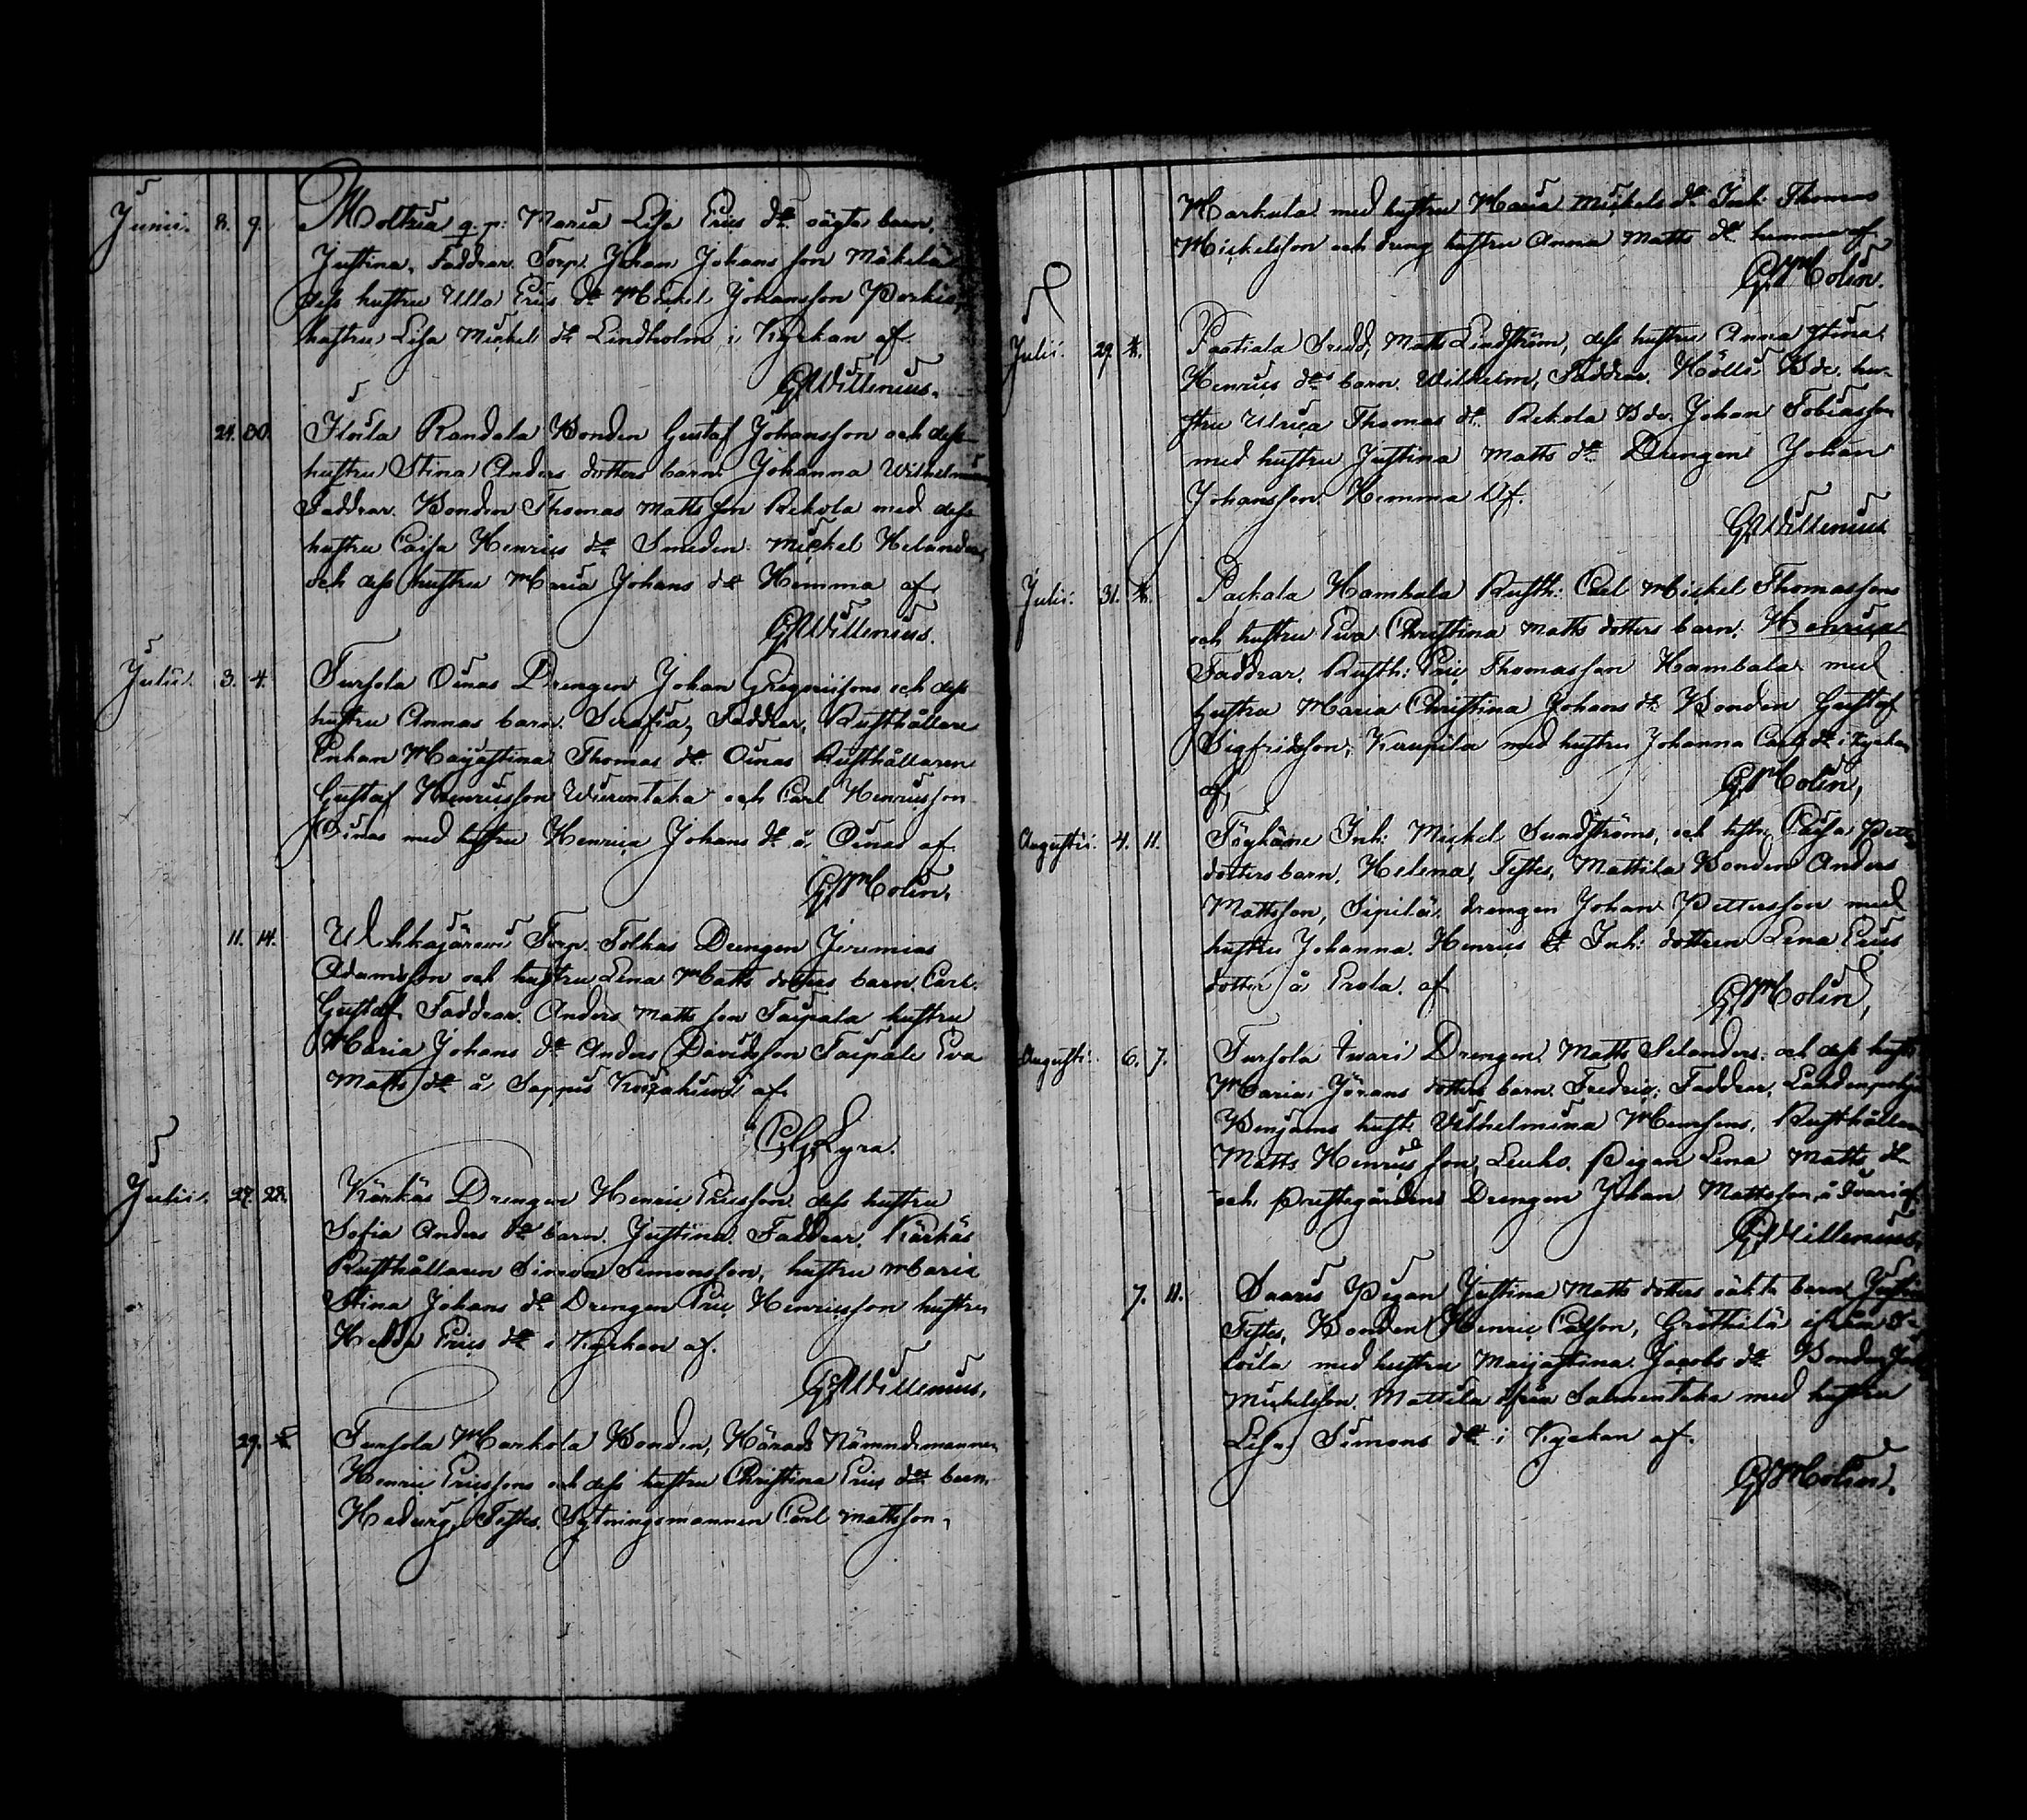 Junii. 8. 9. Moltsia q. p. Maria Lisa Erics dr oägta barn,
Justina, Faddrar. Torp. Johan Johansson Mäkelä
dess hustru Ulla Erics dr Mickel Johansson
hustru Lisa Mickels dr Lindholm i Kyrkan af
G. Willenius.
24. 00. Itoila Randala Bonden Gustaf Johansson och dess
hustru Stina Anders dotters barn Johanna Wilhelmina
Faddrar. Bonden Thomas Mattsson Rekola med dess
hustru Caisa Henrics dr Smeden Mickel Helander
och dess hustru Maria Johans dr Hemma af
G. Willenius.
Julii. 3. 4. Tursola Oinas Drengen Johan Gregorissons och dess
hustru Annas barn. Serafia, Faddrar, Rusthållare
Enkan Majastina Thomas dr Oinas Rusthållaren
Gustaf Henricsson Wuorentaka och Carl Henricsson
Oinas med hustru Henrica Johans dr å Oinas af
G. Molin.
11. 14. Uskkajärwi Torp. Tolkas Drengen Jeremias
Adamsson och hustru Lena Matts dotters barn. Carl
Gustaf. Faddrar. Anders Mattsson Taipala hustru
Maria Johans dr Anders Davidsson Taipale Eva
Matts dr å af.
C. G. Lyra.
Julii. 27. 28. Kärkäs Drengen Henric Ericsson dess hustru
Sofia Anders drs barn. Justina. Faddrar. Kärkäs
Rusthållaren Simon Simonsson, hustru Maria
Stina Johans dr Drengen Eric Henricsson hustru
Hedda Erics dr i Kyrkan af.
G. Willenius.
29. Tursola Markola Bonden, Härads Nämndemannen
Henric Ericssons och dess hustru Christina Erics drs barn.
Hedvig, Testes. Sytningsmannen Carl Mattsson,
Markula med hustru Maria Mickels dr Inh: Thomas
Mickelsson och dreng hustru Anna Matts dr hemma af
G. Molin.
Julii. 29. Paatiala Matts Lindström, dess hustru Anna Stina
Henrics drs barn. Wilhelm, Faddrar. Hölli Bde. hu-
stru Ulrica Thomas dr Rekola Bde. Johan Tobiasson
med hustru Justina Matts dr Drengen Johan
Johansson. Hemma Af.
G. Willenius
Julii. 31. Paikala Hambala Rusth: Carl Mickel Thomassons
och hustru Eva Christina Matts dotters barn. Henrica
Faddrar. Rusth: Eric Thomasson Hambala med
hustru Maria Christina Johans dr Bonden Gustaf
Sigfridsson, Kaupila med hustru Johanna Carls dr i Kyrkan
af, G. Molin,
Augusti. 4. 11. Inh: Mickel Sundströms, och hustru Caisa
dotters barn. Helena, Testes, Mattila Bonden Anders
Mattsson, Sipilä drengen Johan Pettersson med
hustru Johanna Henrics dr Inh: dottren Lena Erics
dotter å Erola. af
G. Molin,
Augusti. 6. 7. Tursola Iwari Drengen Matts Selanders och dess
Maria Jörans dotters barn. Fredric, Faddrar,
Benjams Wilhelmina Rusthållaren
Matts Henricsson, Pigan Lena Matts dr
och Prestegårdens Drengen Johan Mattsson å Iwari af
G. Willenius.
7. 11. Saaris Pigan Justina Matts dotters oäkta barn
Testes, Bonden Henric Carlsson, ifrån
med hustru Maijastina Jacobs dr Bonden
Mickelsson Mattila ifrån Salmentaka med hustru
Lisa Simons dr i Kyrkan af.
G. Molin.